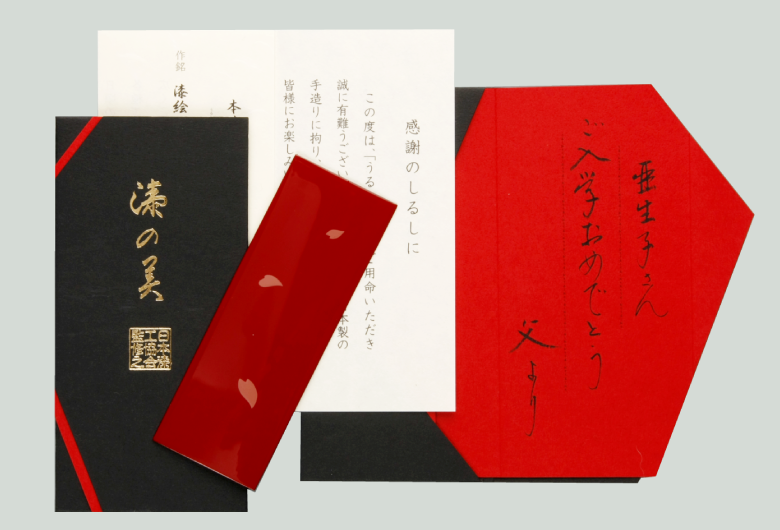 亜生子さん
ご入学おめでとう
父より
感謝のしるしに
この度は、「うる
用命いただき
誠に有難うござい
本製の
手造りに拘り、
皆様にお楽しみ
本
作銘 漆絵
漆の美
日本漆
工協会
監修之